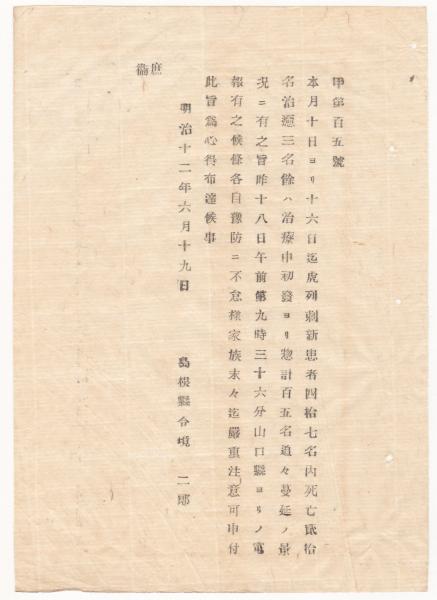 甲第百五號
本月十日ヨリ十六日迄虎列剌新患者四拾七名内死亡貳拾
名治癒三名餘ハ治療中初發ヨリ惣計百五名追々蔓延ノ景
況ニ有之旨昨十八日午前第九時三十六分山口縣ヨリノ電
報有之候條各自豫防ニ不怠樣家族末々迄嚴重注意可申付
此旨爲心得布達候事
明治十二年六月十九日
島根縣令境二郎
庶衞